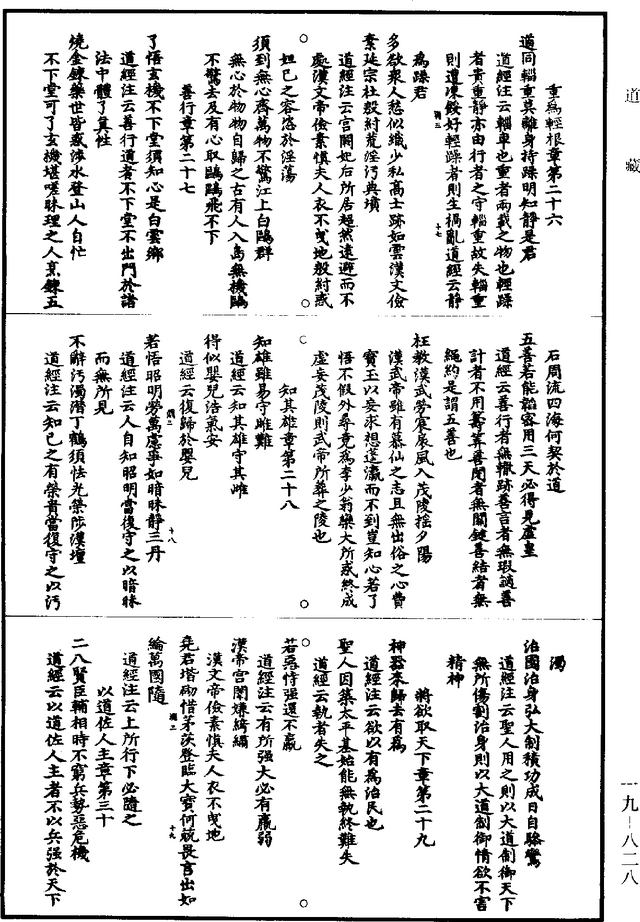 道藏
重為輕根章第二十六
道同輜重莫離身持躁明知靜是君
道經注云輜車也重者兩載之物也輕躁
者貴重靜亦由行者之守輜重故失輜重
則遭凍餒好輕躁者則生禍亂道經云靜
為躁君
多欲眾人愁似織少私高士跡如雲漢文儉
素延宗社殷紂荒淫污典墳
道經注云宮闕妃后所居超然遠避而不
處漢文帝儉素慎夫人衣不曳地殷紂惑
妲己之容恣於淫蕩
須到無心齊萬物不驚江上白鷗群
無心於物物自歸之古有人入島無機鷗
不驚去及有心取鷗鷗飛不下
善行章第二十七
了悟玄機不下堂須知心是白雲鄉
道經注云善行道者不下堂不出門於諸
法中體了真性
燒金鍊藥世皆惑涉水登山人自忙
不下堂可了玄機堪嗟昧理之人烹鍊五
石周流四海何契於道
五善若能韜密用三天必得見虛皇
道經云善行者無轍跡善言者無瑕讁善
計者不用籌筭善閉者無關鍵善結者無
繩約是謂五善也
枉教漢武勞宸衷風入茂陵搖夕陽
漢武帝雖有慕仙之志且無出俗之心費
寶玉以妄求想蓬瀛而不到豈知心若了
悟不假外尋竟為李少翁欒大所惑終成
虛妄茂陵則武帝所葬之陵也
知其雄章第二十八
知雄雖易守雌難
道經云知其雄守其雌
得似嬰兒浩氣安
道經云復歸於嬰兒
若悟昭明勞萬慮爭如暗昧靜三丹
道經注云人自知昭明當復守之以暗昧
而無所見
不辭污濁潛丁鶴須怯光榮陟漢壇
道經注云知己之有榮貴當復守之以污
濁
治國治身弘大制積功成日自驂鸞
道經注云聖人用之則以大道制御天下
無所傷割治身則以大道制御情欲不害
精神
將欲取天下章第二十九
神器來歸去有為
道經注云欲以有為治民也
聖人因築太平基始能無執終難失
道經云執者失之
若惡恃強還不羸
道經注云有所強大必有羸弱
漢帝宮闈嫌綺繡
漢文帝儉素慎夫人衣不曳地
堯君堦砌惜茅茨登臨大寶何兢畏言出如
綸萬國隨
道經注云上所行下必隨之
以道佐人主章第三十
二八賢臣輔相時不窮兵勢惡危機
道經云以道佐人主者不以兵強於天下
十七
十八
十九
一九—八二八